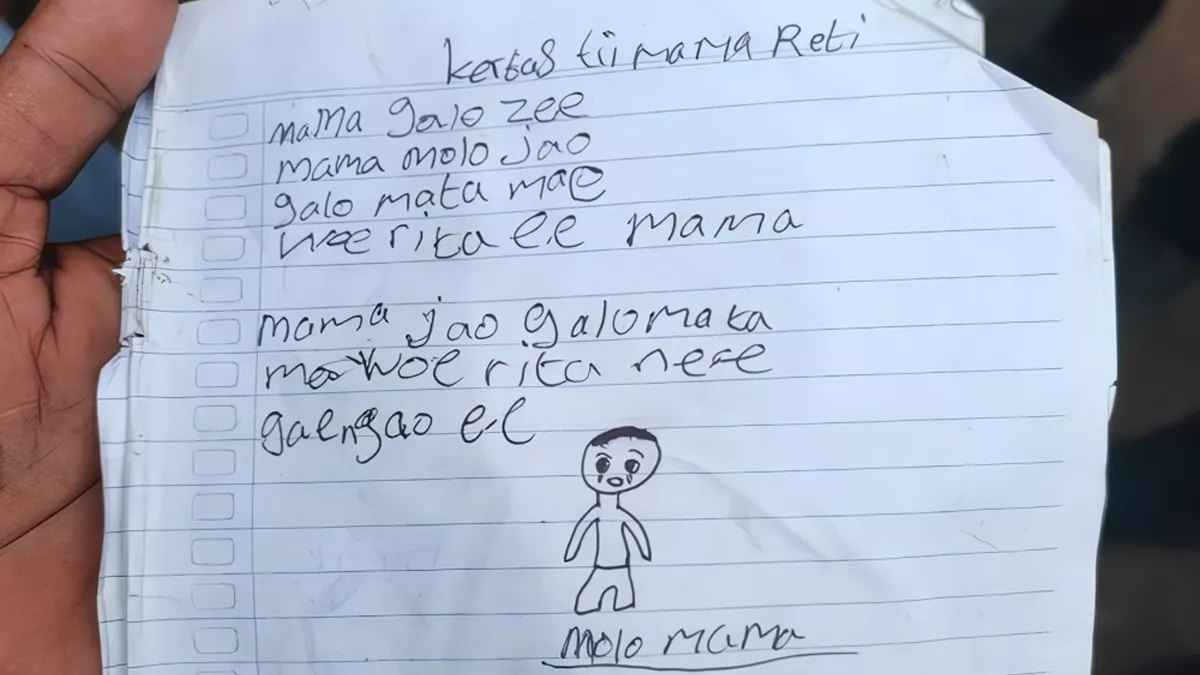 Kertas tii mama Reti
mama galo zee
mama molo jao
galo mata mae
woe rita e.e mama
mama jao galo mata
mae woe rita ne-e
gae ngao e-e
molo mama